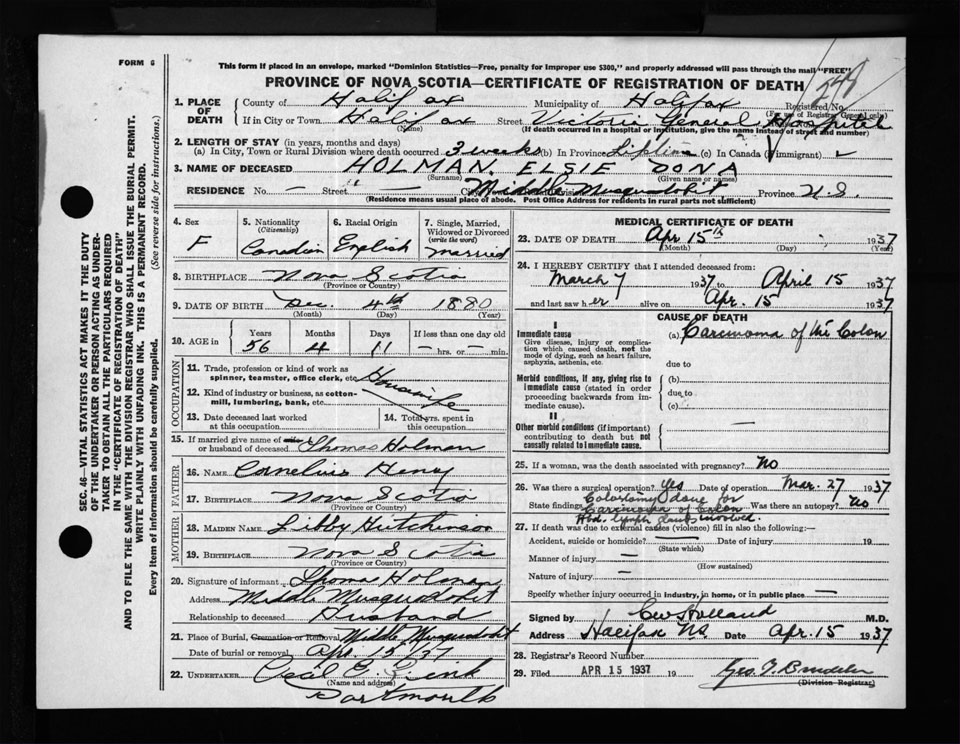 FORM 6
This form if placed in an envelope, marked "Dominion Statistics—Free, penalty for improper use $300," and properly addressed will pass through the mail "FREE"
PROVINCE OF NOVA SCOTIA—CERTIFICATE OF REGISTRATION OF DEATH
1. PLACE OF DEATH
County of Halifax Municipality of Halifax Registered No.
(For use of Registrar General only)
If in City or Town Halifax Street Victoria General Hospital
(Name) (If death occurred in a hospital or institution, give the name instead of street and number)
2. LENGTH OF STAY (in years, months and days)
(a) In City, Town or Rural Division where death occurred 3 weeks (b) In Province (c) In Canada (if immigrant)
3. NAME OF DECEASED HOLMAN. ELSIE DONA
(Surname) (Given name or names)
RESIDENCE No. — Street " — Middle Musquodobit. Province N.S.
(Residence means usual place of abode. Post Office Address for residents in rural parts not sufficient)
4. Sex
F
5. Nationality
(Citizenship)
Canadian
6. Racial Origin
English
7. Single, Married, Widowed or Divorced
(write the word)
Married
8. BIRTHPLACE Nova Scotia
(Province or Country)
9. DATE OF BIRTH Dec. 4th 1880
(Month) (Day) (Year)
10. AGE in
Years Months Days If less than one day old
56 4 11 — hrs. or — min.
OCCUPATION
11. Trade, profession or kind of work as spinner, teamster, office clerk, etc. Housewife
12. Kind of industry or business, as cotton-mill, lumbering, bank, etc.
13. Date deceased last worked at this occupation
14. Total yrs. spent in this occupation
15. If married give name of wife or husband of deceased Thomas Holman
FATHER
16. NAME Cornelius Henry
17. BIRTHPLACE Nova Scotia
(Province or Country)
MOTHER
18. MAIDEN NAME Libby Hutchinson
19. BIRTHPLACE Nova Scotia
(Province or Country)
20. Signature of informant Thomas Holman
Address Middle Musquodobit
Relationship to deceased Husband
21. Place of Burial, Cremation or Removal Middle Musquodobit
Date of burial or removal Apr. 15/37
22. UNDERTAKER Cecil E.
(Name and address)
Dartmouth
MEDICAL CERTIFICATE OF DEATH
23. DATE OF DEATH Apr 15th 1937
(Month) (Day) (Year)
24. I HEREBY CERTIFY that I attended deceased from
March 7 1937 to April 15 1937
and last saw her alive on Apr. 15 1937
CAUSE OF DEATH
I
Immediate cause
Give disease, injury or complication which caused death, not the mode of dying, such as heart failure, asphyxia, asthenia, etc
(a) Carcinoma of the Colon
due to
Morbid conditions, if any, giving rise to immediate cause (stated in order proceeding backwards from immediate cause).
(b)
due to
(c)
II
Other morbid conditions (if important) contributing to death but not causally related to immediate cause.
—
25. If a woman, was the death associated with pregnancy? No
26. Was there a surgical operation? Yes Date of operation Mar. 27 1937
State finding Colostomy done for Carcinoma of Colon Was there an autopsy? No
Abd. lymph glands involved.
27. If death was due to external causes (violence) fill in also the following:—
Accident, suicide or homicide? — Date of injury 19
(State which)
Manner of injury —
(How sustained)
Nature of injury —
Specify whether injury occurred in industry, in home, or in public place —
Signed by Holland M.D.
Address Halifax NS. Date Apr. 15 1937
28. Registrar's Record Number
29. Filed APR 15 1937
(Division Registrar)
SEC. 46—VITAL STATISTICS ACT MAKES IT THE DUTY
OF THE UNDERTAKER OR PERSON ACTING AS UNDER-
TAKER TO OBTAIN ALL THE PARTICULARS REQUIRED
IN THE "CERTIFICATE OF REGISTRATION OF DEATH"
AND TO FILE THE SAME WITH THE DIVISION REGISTRAR WHO SHALL ISSUE THE BURIAL PERMIT.
WRITE PLAINLY WITH UNFADING INK. THIS IS A PERMANENT RECORD.
Every item of information should be carefully supplied. (See reverse side for instructions.)